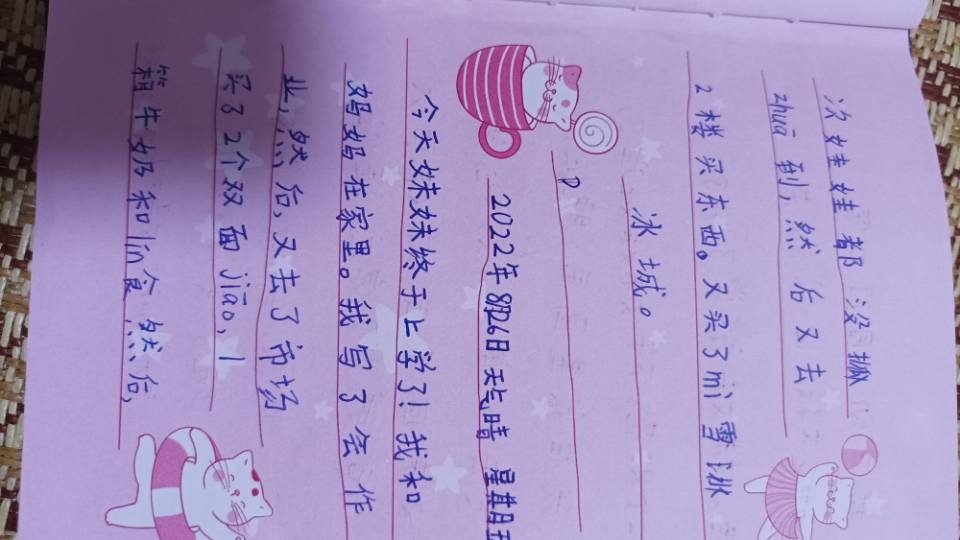 次娃娃都没
zhuā到,然后又去
2楼买东西。又买了mì雪冰
冰城。
2022年8月26日 天气晴 星期五
今天妹妹终于上学了!我和
妈妈在家里。我写了会作
业,然后,又去了市场
买了2个双面jiāo,1
箱牛奶和lín食,然后,